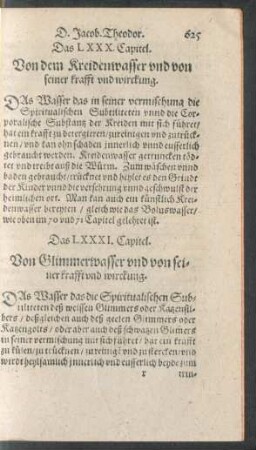 D. Jacob. Theodor. 625
Das LXXX. Capitel.
Von dem Kreidenwasser vnd von
seiner krafft vnd wirckung.
DAs Wasser das in seiner vermischung die
Spiritualischen Subtiliteten vnnd die Cor-
poralische Substantz der Kreiden mit sich führet/
hat ein krafft zu detergieren/zureinigen vnd zutrück-
nen/vnd kan ohn schaden innerlich vnnd eusserlich
gebraucht werden. Kreidenwasser getruncken töd-
tet vnd treibt auß die Würm. Zum wäschen vnnd
baden gebraucht/trücknet vnd heylet es den Grindt
der Kinder vnnd die versehrung vnnd geschwulst der
heimlichen ort. Man kan auch ein künstlich Krei-
denwasser bereyten/gleich wie das Boluswasser/
wie oben im 70 vnd 71 Capitel gelehret ist.
Das LXXXI. Capitel.
Von Glimmerwasser vnd von sei-
ner krafft vnd wirckung.
DAs Wasser das die Spiritualischen Sub-
tiliteten deß weissen Glimmers oder Katzensil-
bers/deßgleichen auch deß geelen Glimmers oder
Katzengolts/oder aber auch deß schwartzen Glimers
in seiner vermischung mit sich führet/hat ein krafft
zu külen/zu trücknen/ vnd zu stercken/vnd
wirdt heylsamlich innerlich vnd eusserlich beyde zum
x trin-